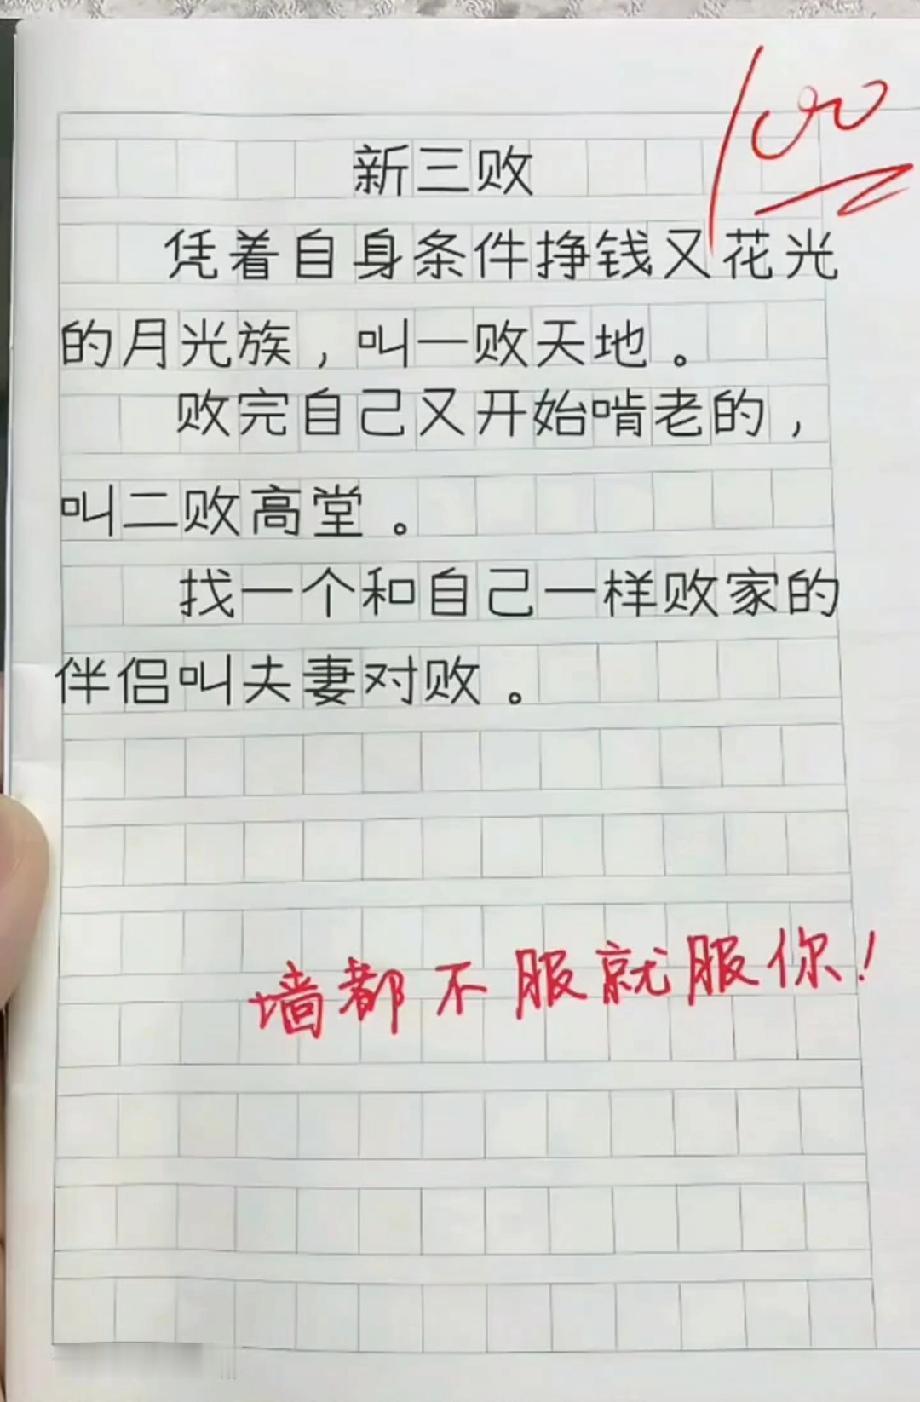 100
新三败
凭着自身条件挣钱又花光
的月光族，叫一败天地。
败完自己又开始啃老的，
叫二败高堂。
找一个和自己一样败家的
伴侣叫夫妻对败。
墙都不服就服你！